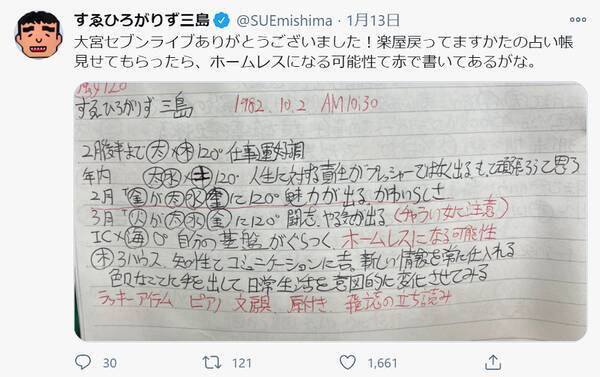 すゑひろがりず三島
@SUEmishima・1月13日
大宮セブンライブありがとうございました！楽屋戻ってますかたの占い帳
見せてもらったら、ホームレスになる可能性て赤で書いてあるがな。
すゑひろがりず 三島 1982.10.2 AM10:30
2月後半まで 木 120° 仕事運好調
年内 120° 人生に対する責任がプレッシャーでは
2月 金が 120° 魅力が出る、かわいらしさ
3月 火が 120° 闘志、やる気が出る (チャラい女に注意)
IC×海 0° 自分の基盤がぐらつく、ホームレスになる可能性
木 3ハウス 知的性てコミュニケーションに吉。新しい情報を常に仕入れる
色んなことに手を出して日常生活を意図的に変化させてみる
ラッキーアイテム ピアノ 文鎮 原付き 雑誌の立ち読み
30
121
1,661